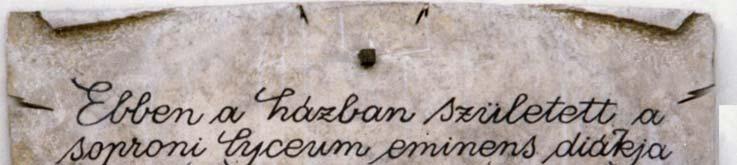 Ebben a házban született a
soproni lyceum eminens diákja